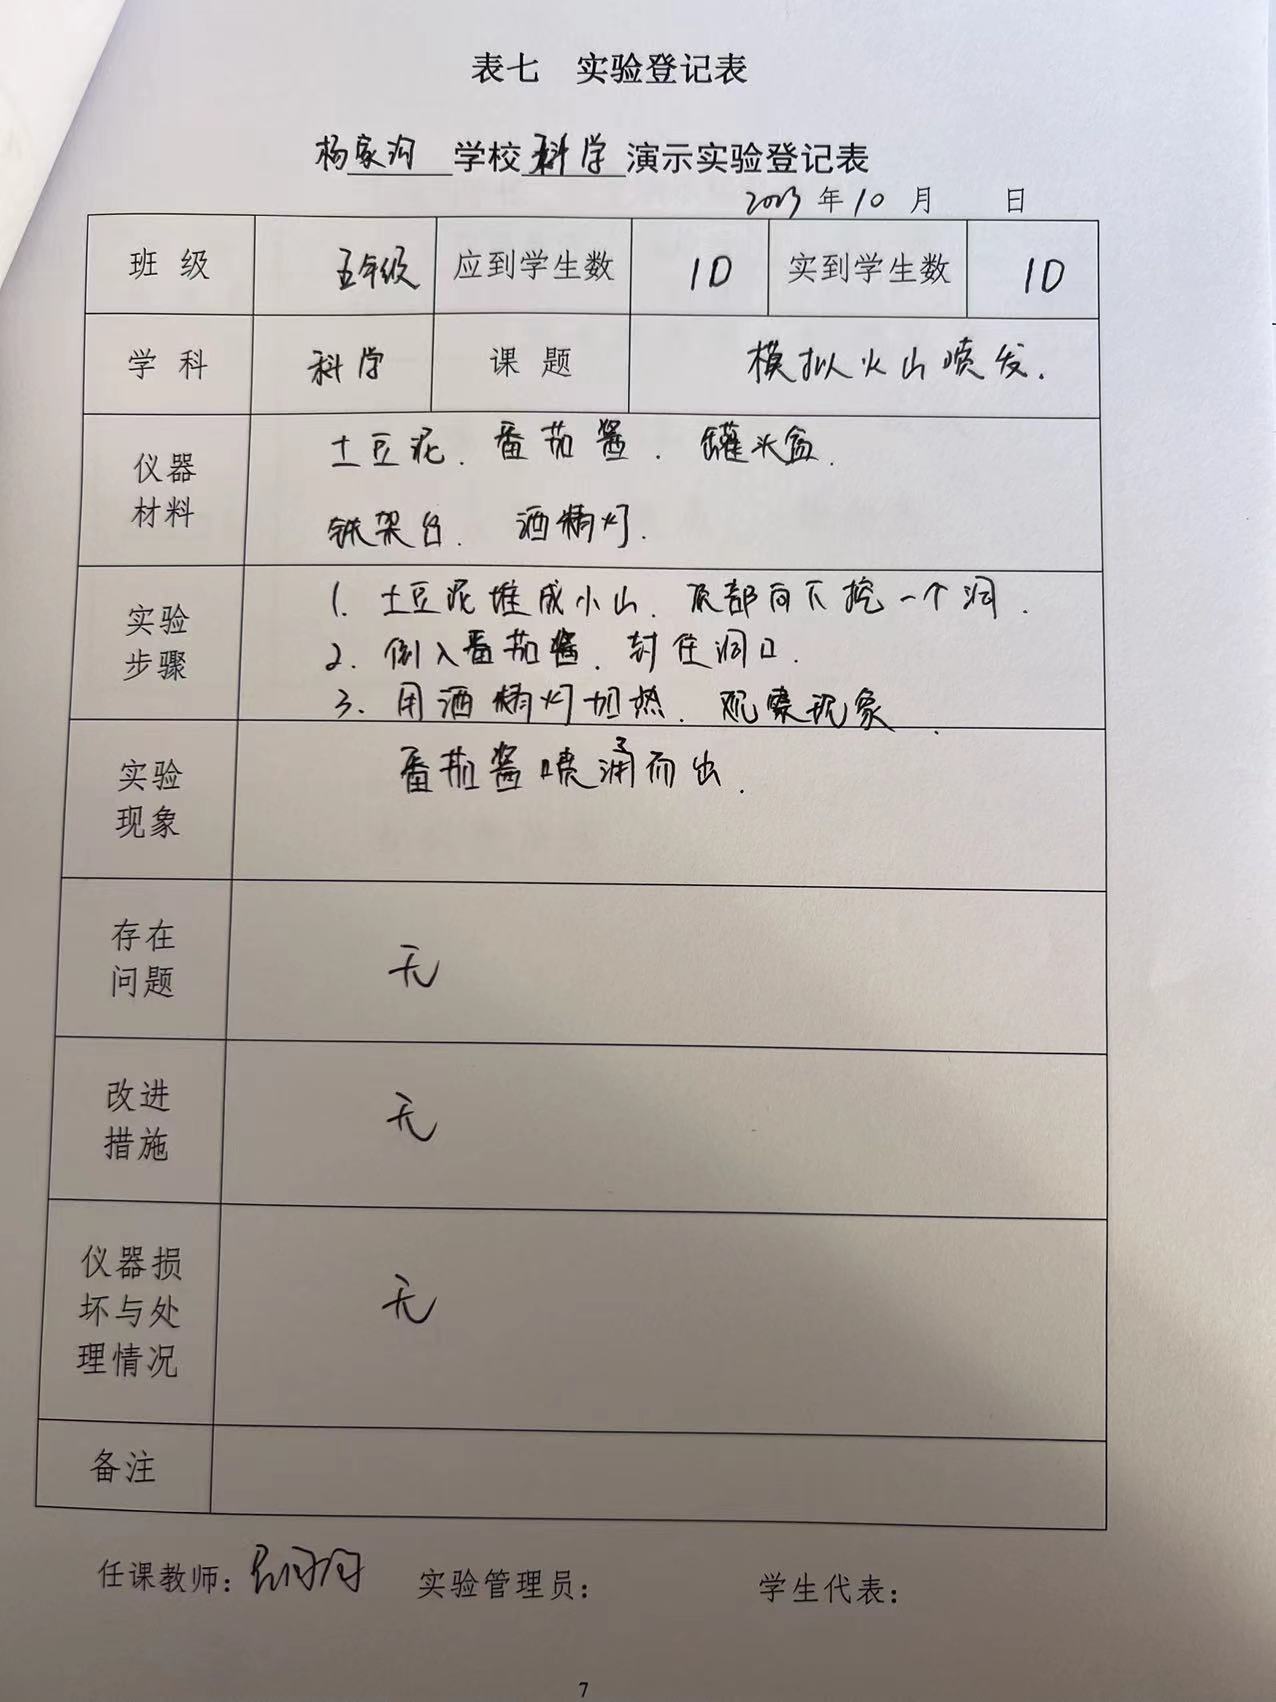 表七 实验登记表
杨家沟 学校 科学 演示实验登记表
2023 年 10 月 日
班 级 五年级 应到学生数 10 实到学生数 10
学 科 科学 课 题 模拟火山喷发.
仪器
材料
土豆泥. 番茄酱. 罐头盒.
铁架台. 酒精灯.
实验
步骤
1. 土豆泥堆成小山. 顶部向下挖一个洞.
2. 倒入番茄酱. 封住洞口.
3. 用酒精灯加热. 观察现象.
实验
现象
番茄酱喷涌而出.
存在
问题
无
改进
措施
无
仪器损
坏与处
理情况
无
备注
任课教师: 实验管理员: 学生代表:
7